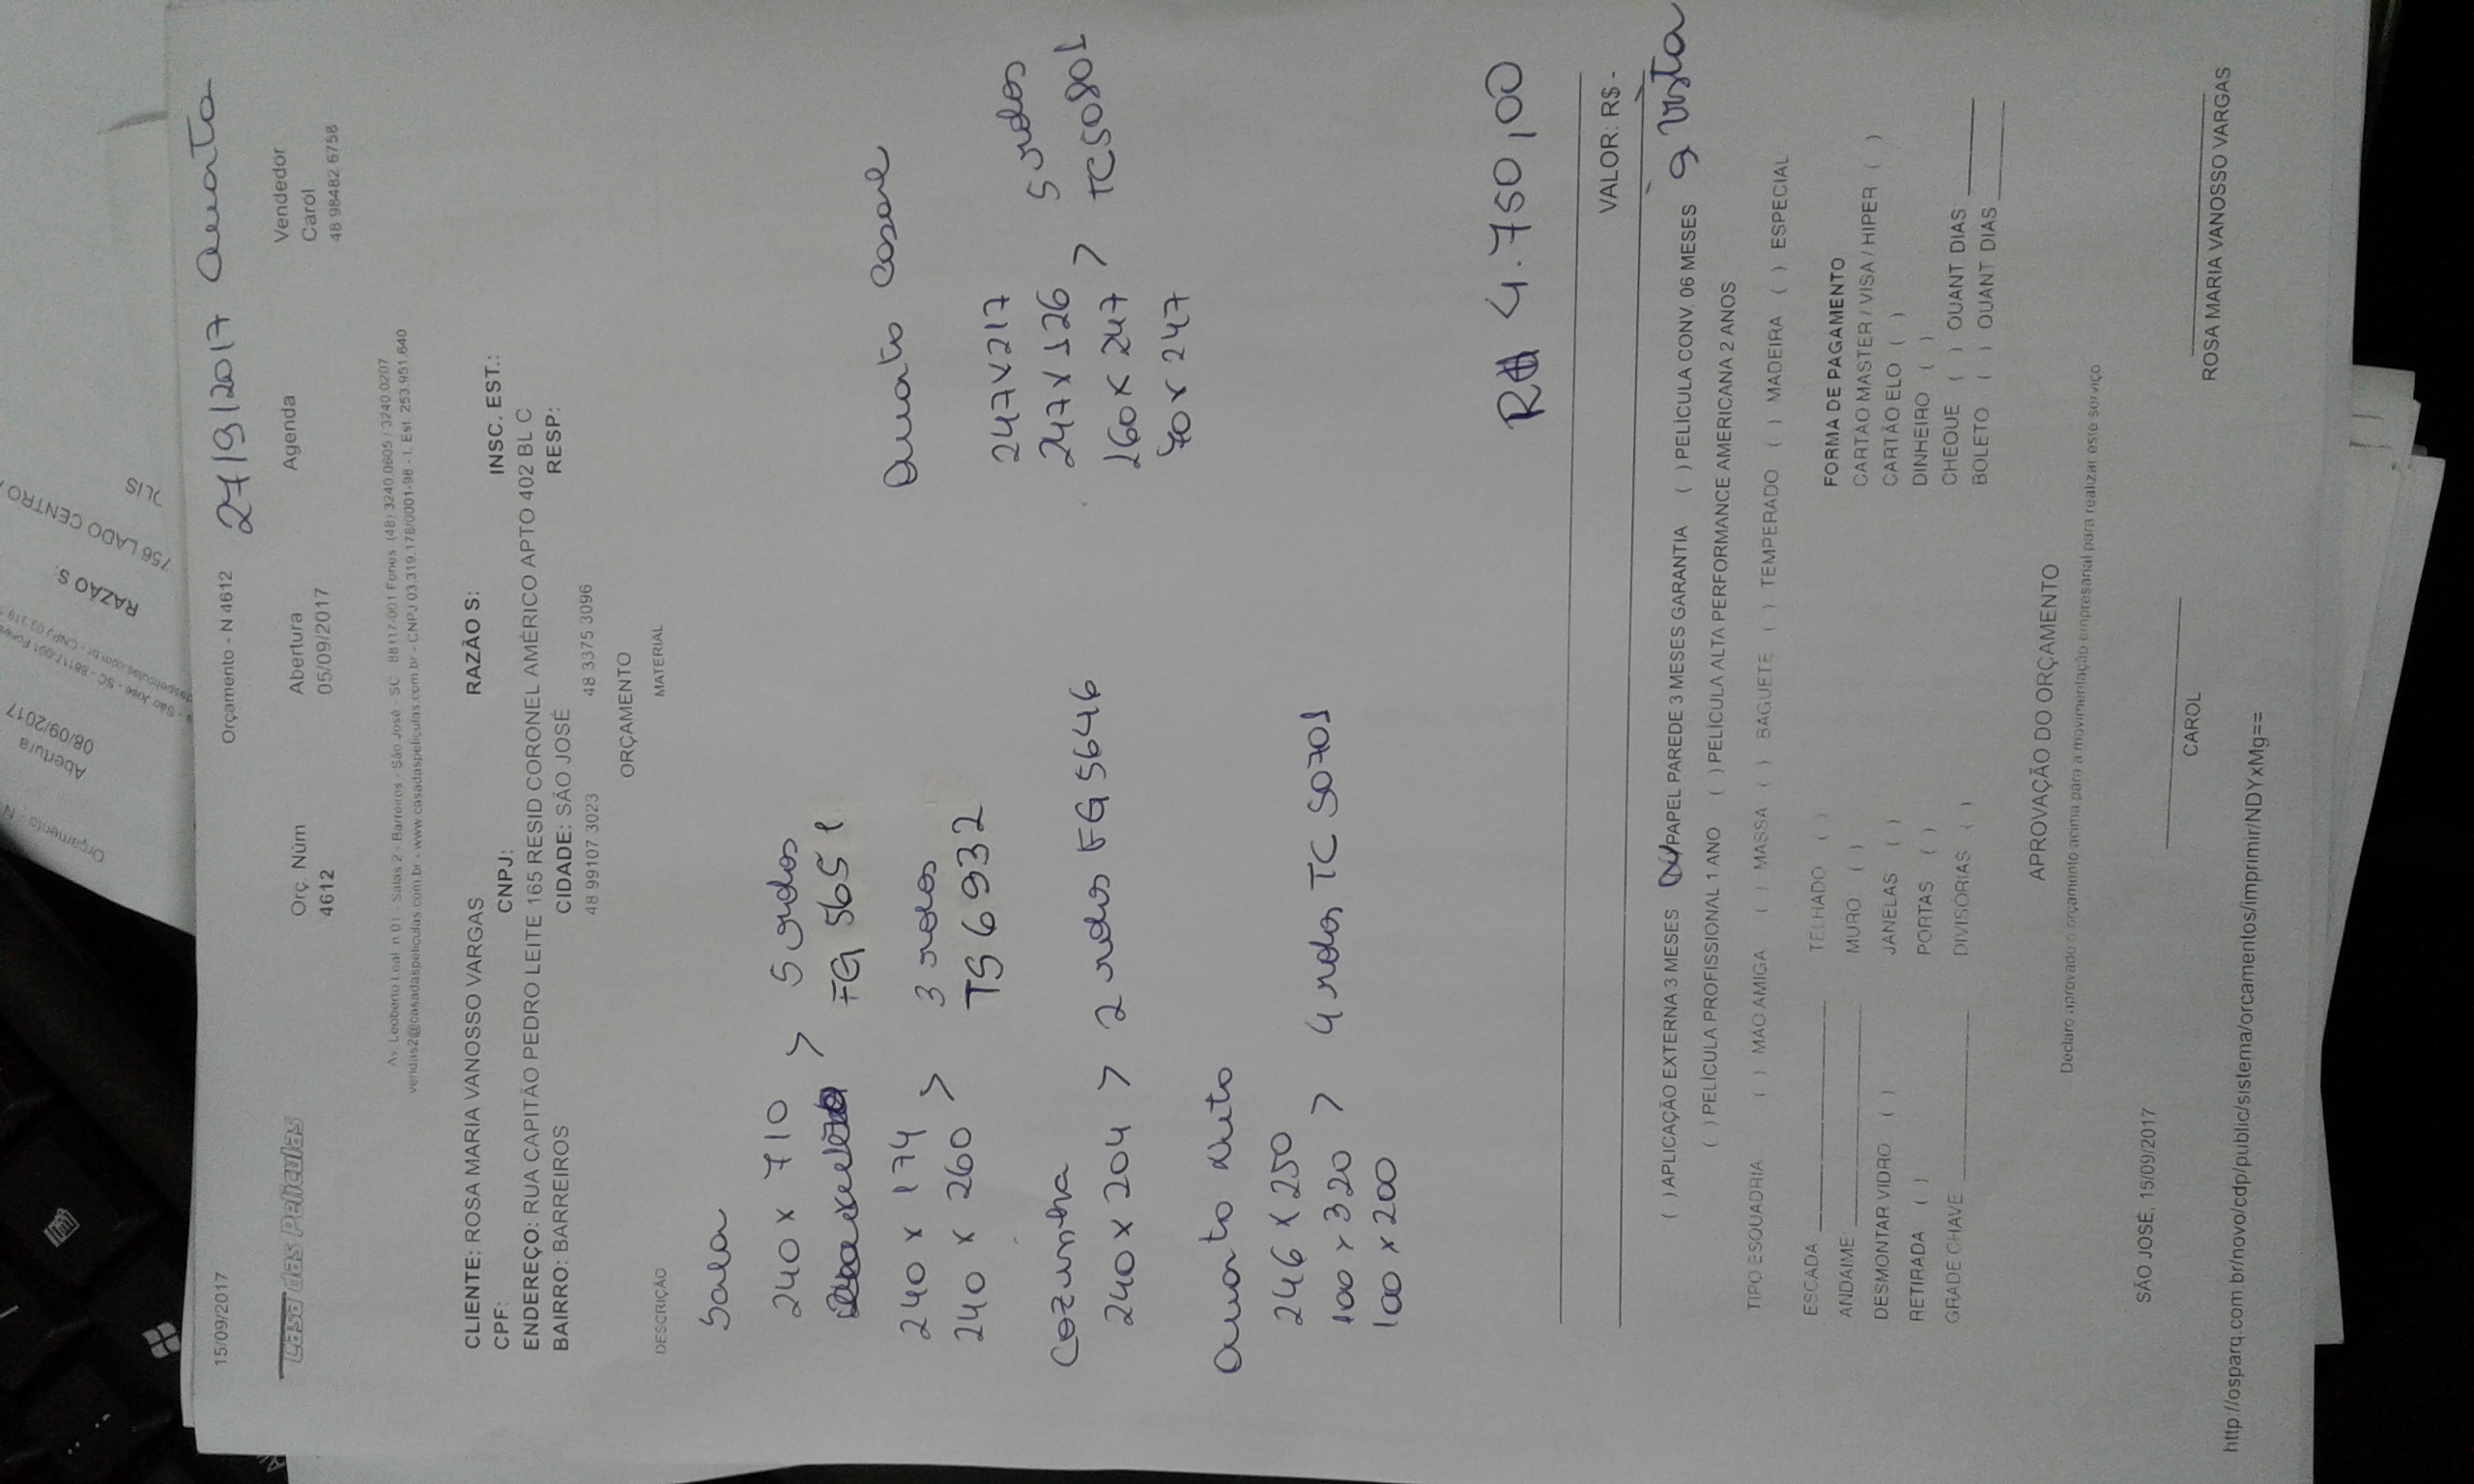 15/09/2017
Orçamento - N 4612
27/9/2017 Quarta
Casa das Películas
Orç. Núm
4612
Abertura
05/09/2017
Agenda
Vendedor
Carol
48 98482 6758
Av. Leoberto Leal n 01 - Salas 2 - Barreiros - São José - SC 88117-001 Fones (48) 3240.0605 / 3240.0207
vendas2@casadaspeliculas.com.br - www.casadaspeliculas.com.br - CNPJ 03.319.178/0001-98 - I. Est 253.951.640
CLIENTE: ROSA MARIA VANOSSO VARGAS RAZÃO S:
CPF: CNPJ: INSC. EST.:
ENDEREÇO: RUA CAPITÃO PEDRO LEITE 165 RESID CORONEL AMÉRICO APTO 402 BL C
BAIRRO: BARREIROS CIDADE: SÃO JOSÉ RESP:
48 99107 3023 48 3375 3096
ORÇAMENTO
DESCRIÇÃO MATERIAL
Sala
240 x 710 > 5 rolos
FG 5651
240 x 174
240 x 260 > 3 rolos
TS 6932
Cozinha
240 x 204 > 2 rolos FG 5646
Quarto neto
246 x 250
100 x 320 > 4 rolos TC S0701
100 x 200
Quarto casal
247 x 217
247 x 126 5 rolos
160 x 247 > TC50801
70 x 247
R$ 4.750,00
VALOR: R$ -
( ) APLICAÇÃO EXTERNA 3 MESES (X) PAPEL PAREDE 3 MESES GARANTIA ( ) PELÍCULA CONV. 06 MESES a vista
( ) PELÍCULA PROFISSIONAL 1 ANO ( ) PELÍCULA ALTA PERFORMANCE AMERICANA 2 ANOS
TIPO ESQUADRIA ( ) MÃO AMIGA ( ) MASSA ( ) BAGUETE ( ) TEMPERADO ( ) MADEIRA ( ) ESPECIAL
ESCADA TELHADO ( )
ANDAIME MURO ( )
DESMONTAR VIDRO ( ) JANELAS ( )
RETIRADA ( ) PORTAS ( )
GRADE CHAVE DIVISORIAS ( )
FORMA DE PAGAMENTO
CARTÃO MASTER / VISA / HIPER ( )
CARTÃO ELO ( )
DINHEIRO ( )
CHEQUE ( ) QUANT DIAS:
BOLETO ( ) QUANT DIAS
APROVAÇÃO DO ORÇAMENTO
Declaro aprovado o orçamento acima para a movimentação empresarial para realizar este serviço
SÃO JOSÉ, 15/09/2017
CAROL
ROSA MARIA VANOSSO VARGAS
http://osparq.com.br/novo/cdp/public/sistema/orcamentos/imprimir/NDYxMg==
Orçamento - N
Abertura
08/09/2017
RAZÃO S:
756 LADO CENTRO